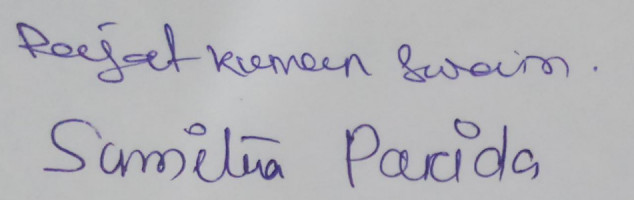 Rajat kumar Swain.
Sumitra Parida